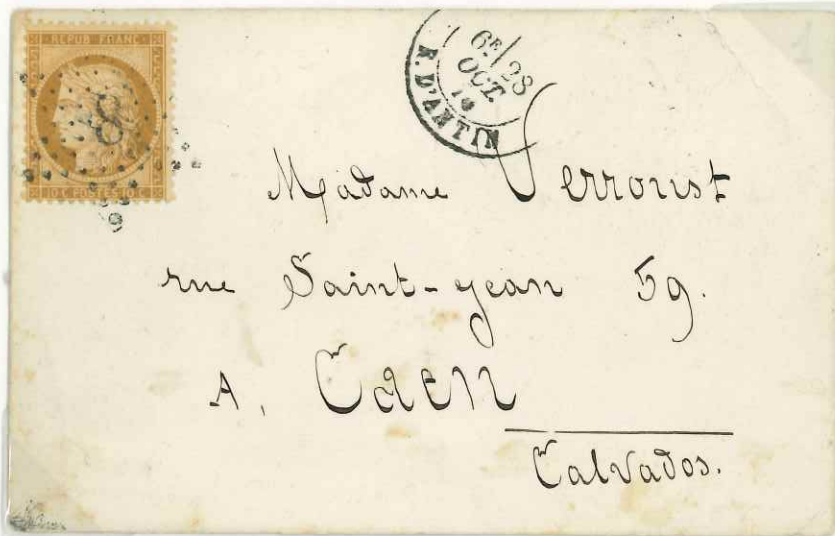 REPUB FRANC
10 C. POSTES 10 C.
8
6E 28
OCT
R. D'ANTIN
Madame Verroust
rue Saint-Jean 59.
A, Caen
Calvados.